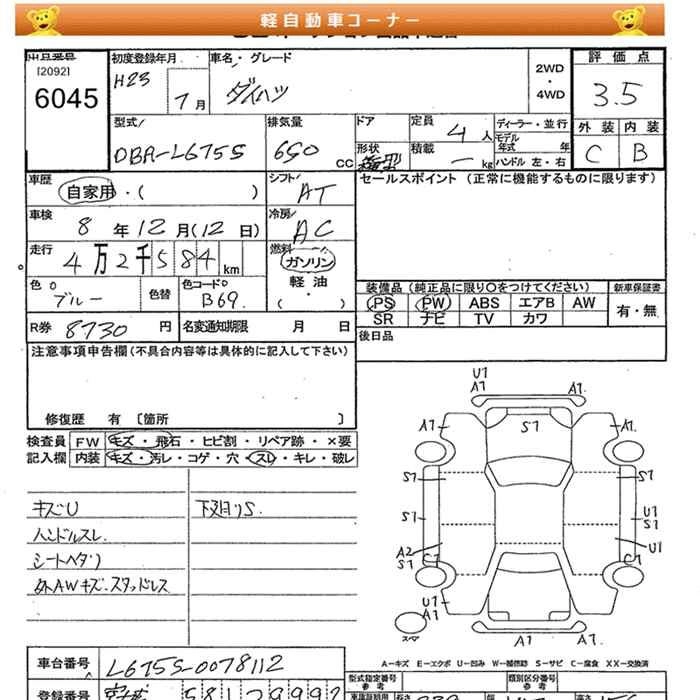 軽自動車コーナー
出品番号
[2092]
6045
初度登録年月
H23
7月
車名・グレード
ダイハツ
2WD
・
4WD
評価点
3.5
型式
DBA-L675S
排気量
660 CC
ドア
形状
定員 4人
積載 － kg
ディーラー・並行
モデル
年式 年
ハンドル 左・右
外装 内装
C B
車歴
自家用・( )
シフト
AT
セールスポイント (正常に機能するものに限ります)
車検
8年12月(12日)
冷房
AC
走行
4万2千584km
燃料
ガソリン
軽油
・( )
色
ブルー
色替
色コードNo
B69
装備品(純正品に限り○をつけてください)
新車保証書
PS PW ABS エアB AW
SR ナビ TV カワ
有・無
R券 8730円
名変通知期限 月 日
後日品
注意事項申告欄(不具合内容等は具体的に記入して下さい)
修復歴 有 [箇所 ]
検査員
記入欄
FW キズ・飛石・ヒビ割・リペア跡・×要
内装 キズ・汚レ・コゲ・穴・スレ・キレ・破レ
キズU
ハンドルスレ
シートヘタリ
外AWキズ.スタッドレス
下廻りS.
U1
A1
A1.
A1
S1
A1.
S1
S1
S1
U1
S1
A2
S1
C1
U1
C1
U1
A1
A1.
スペア
A1
A1.
A－キズ E－エクボ U－凹み W－補修跡 S－サビ C－腐食 XX－交換済
車台番号 L675S-0078112
型式指定番号
参考
類別区分番号
参考
登録番号